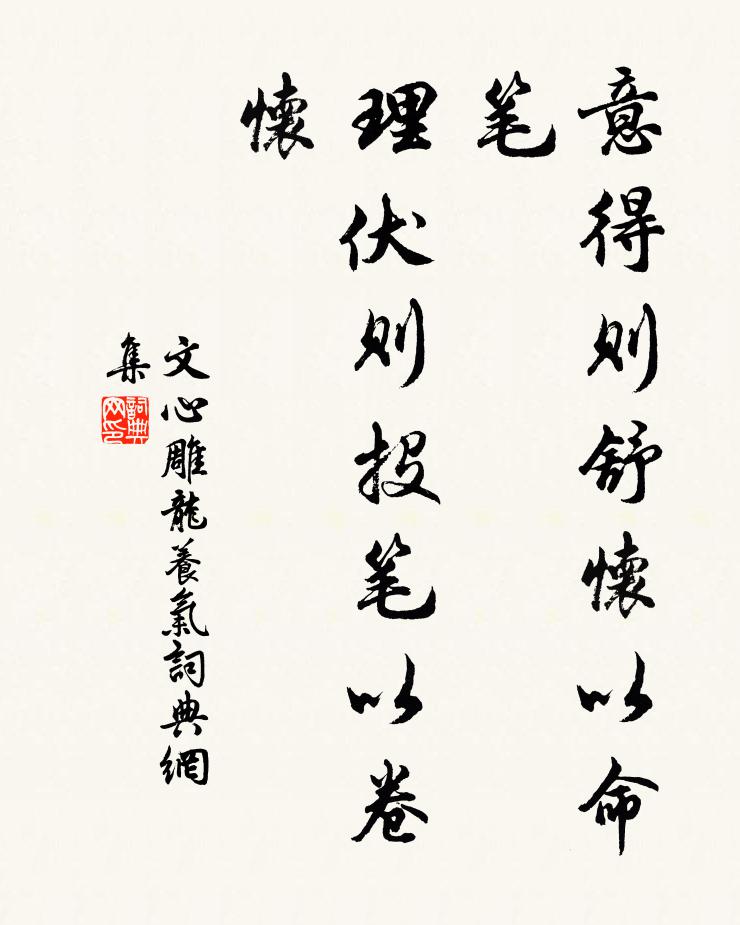 意得则舒懷以命
笔
理伏则投笔以卷
懷
文心雕龍養氣詞典網
集
詞典
网印